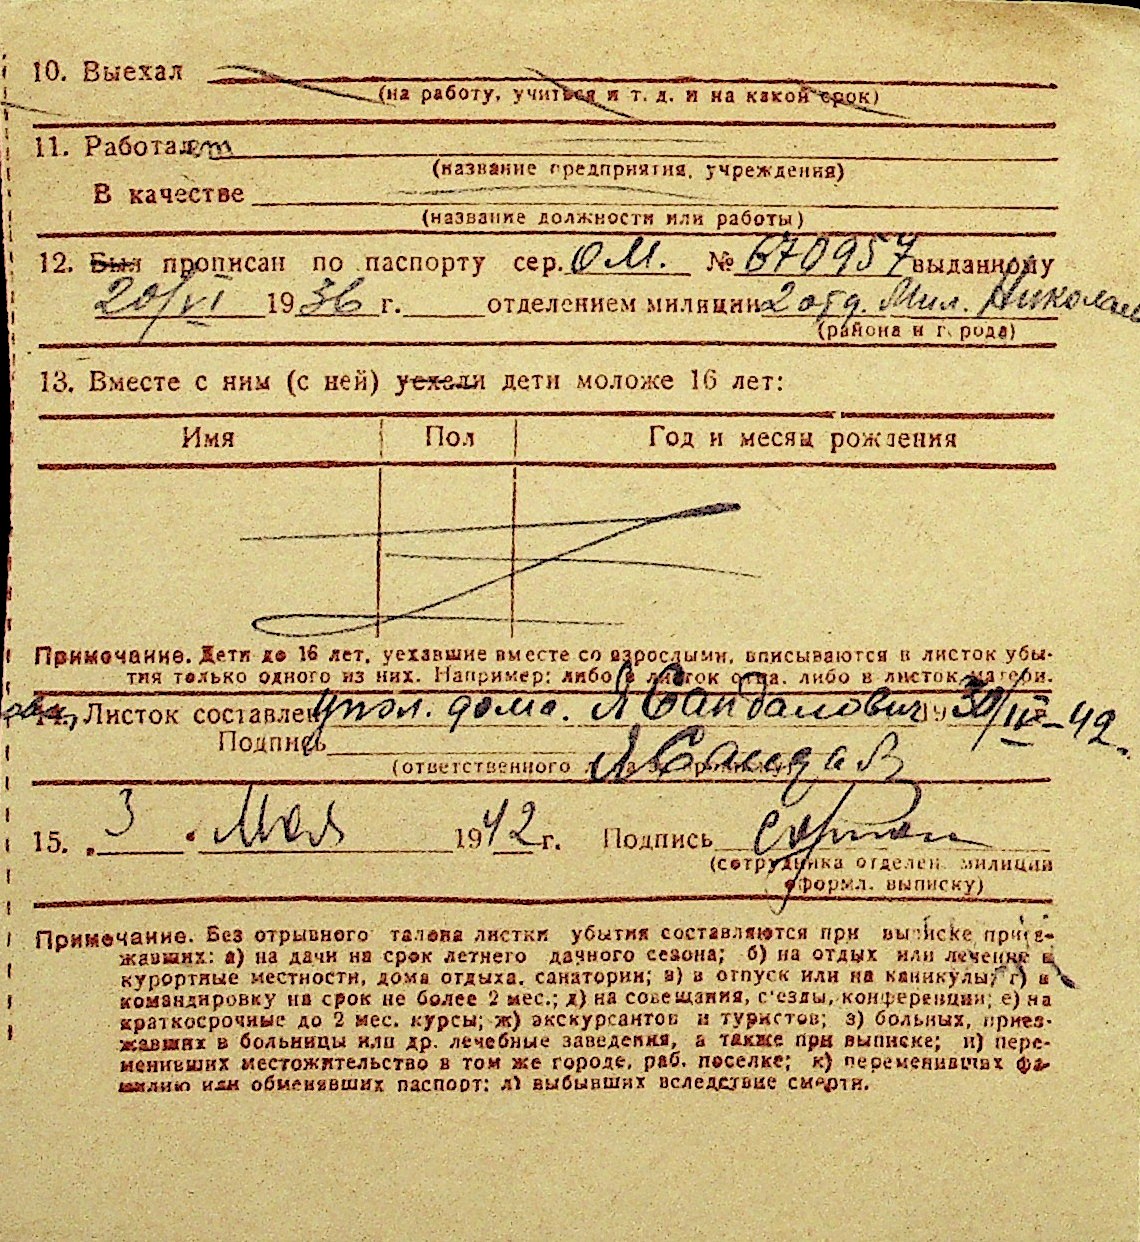 10. Выехал
(на работу, учиться и т. д. и на какой срок)
11. Работает
(название предприятия, учреждения)
В качестве
(название должности или работы)
12. Был прописан по паспорту сер. ОМ. № 670957 выданному
20/VI 1936 г. отделением милиции 2 отд. Мил. Николаев
(района и города)
13. Вместе с ним (с ней) уехали дети моложе 16 лет:
Имя Пол Год и месяц рождения
Примечание. Дети до 16 лет, уехавшие вместе со взрослыми, вписываются в листок убы-
тия только одного из них. Например: либо в листок отца, либо в листок матери.
14. Листок составлен упол. дома. Я Сандалович 30/IV-42.
Подпись Я Сандав
(ответственного за прописку)
15. „3" Мая 1942 г. Подпись
(сотрудника отделен. милиции
оформл. выписку)
Примечание. Без отрывного талона листки убытия составляются при выписке приез-
жавших: а) на дачи на срок летнего дачного сезона; б) на отдых или лечение в
курортные местности, дома отдыха, санатории; в) в отпуск или на каникулы; г) в
командировку на срок не более 2 мес.; д) на совещания, с'езды, конференции; е) на
краткосрочные до 2 мес. курсы; ж) экскурсантов и туристов; з) больных, приез-
жавших в больницы или др. лечебные заведения, а также при выписке; и) пере-
менивших местожительство в том же городе, раб. поселке; к) переменивших фа-
милию или обменявших паспорт; л) выбывших вследствие смерти.